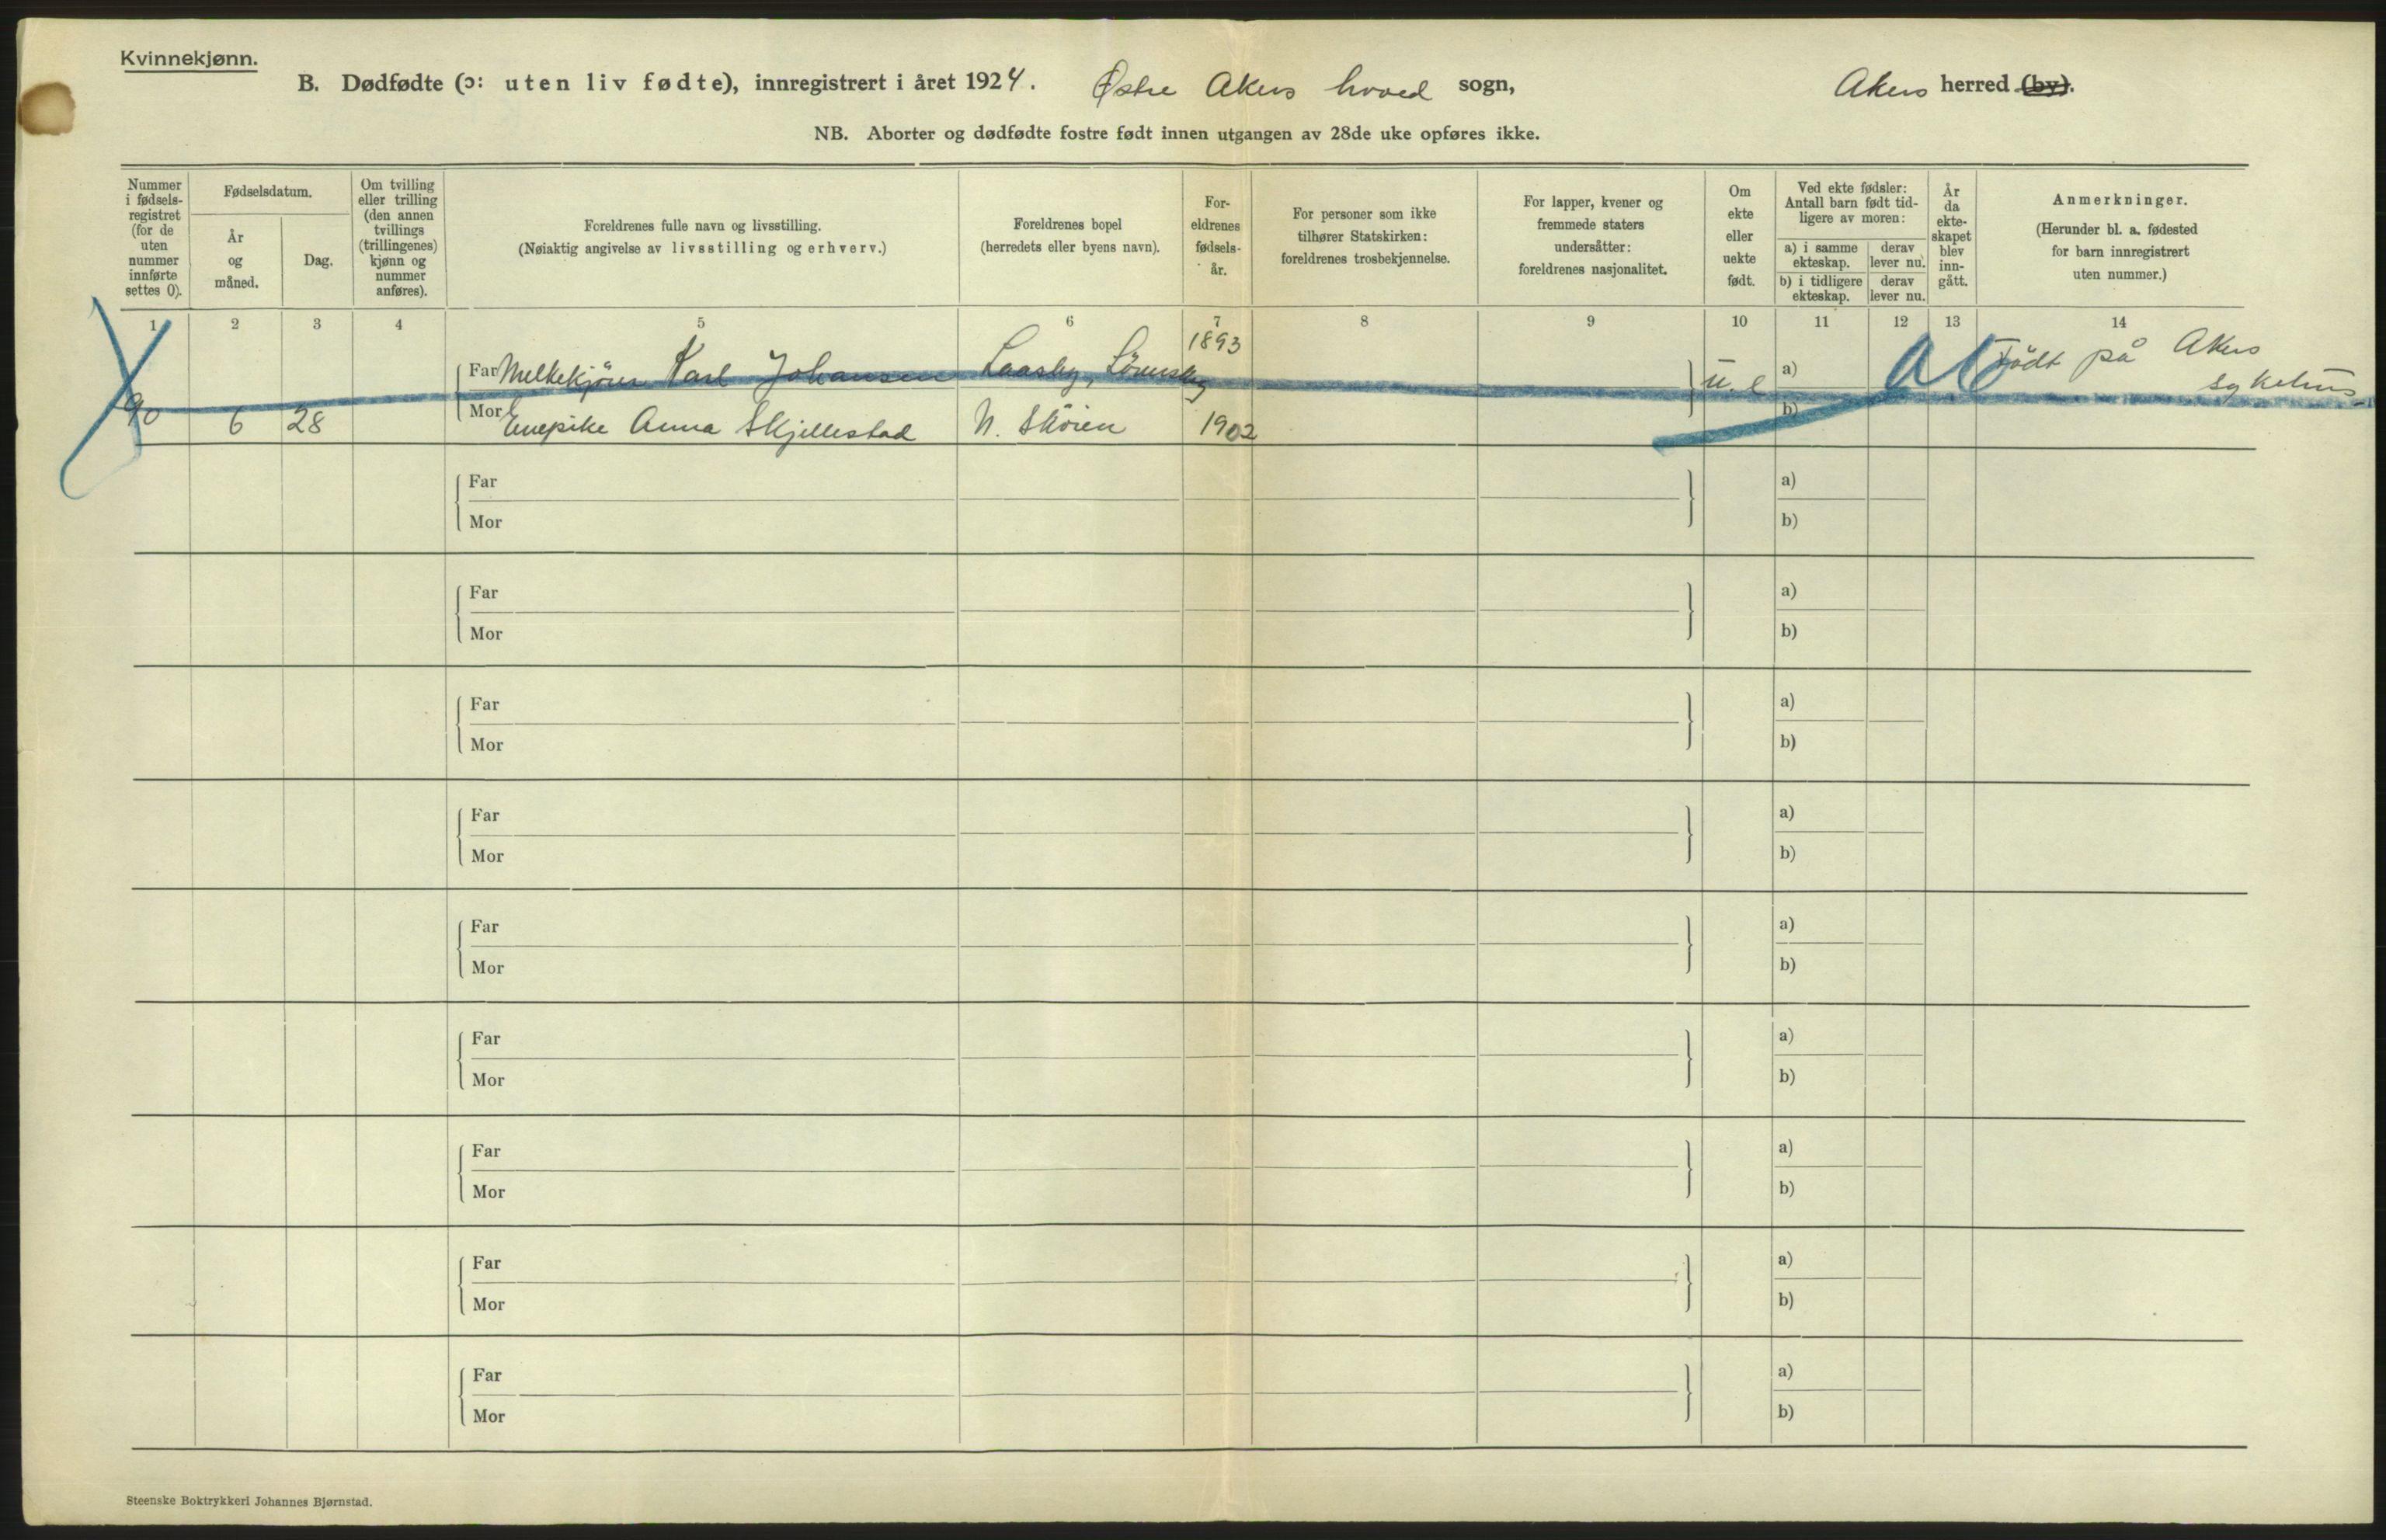 Kvinnekjønn.
B. Dødfødte (ɔ: uten liv fødte), innregistrert i året 1924. Østre Akers hoved sogn, Akers herred (by).
NB. Aborter og dødfødte fostre født innen utgangen av 28de uke opføres ikke.
Nummer i fødsels-registret (for de uten nummer innførte settes 0).
Fødselsdatum.
År og måned.
Dag.
Om tvilling eller trilling (den annen tvillings (trillingenes) kjønn og nummer anføres).
Foreldrenes fulle navn og livsstilling.
(Nøiaktig angivelse av livsstilling og erhverv.)
Foreldrenes bopel
(herredets eller byens navn).
For-eldrenes fødsels-år.
For personer som ikke tilhører Statskirken: foreldrenes trosbekjennelse.
For lapper, kvener og fremmede staters undersåtter: foreldrenes nasjonalitet.
Om ekte eller uekte født.
Ved ekte fødsler: Antall barn født tid-ligere av moren:
a) i samme ekteskap.
derav lever nu.
b) i tidligere ekteskap.
derav lever nu.
År da ekte-skapet blev inn-gått.
Anmerkninger.
(Herunder bl. a. fødested for barn innregistrert uten nummer.)
1 2 3 4 5 6 7 8 9 10 11 12 13 14
Far Melkekjører Karl Johansen 1893 u. e a) Født på Akers
sykehus
90 6 28 Mor Enepike Anna Skjellestad N. Skøien 1902 b)
Far a)
Mor b)
Far a)
Mor b)
Far a)
Mor b)
Far a)
Mor b)
Far a)
Mor b)
Far a)
Mor b)
Far a)
Mor b)
Far a)
Mor b)
Far a)
Mor b)
Steenske Boktrykkeri Johannes Bjørnstad.